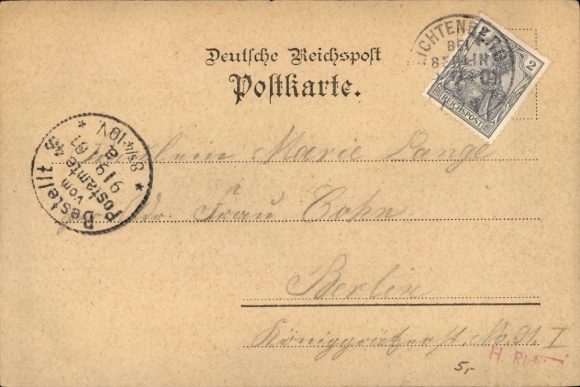 Deutsche Reichspost
Postkarte.
LICHTENBERG
BEI
BERLIN
2
REICHSPOST
Bestellt
vom
Postamte 46
9/9
8 3/4-10 V.
Fräulein Marie Lange
Adr. Frau Cohn
Berlin
Königgrätzerst. I
5,-
H.